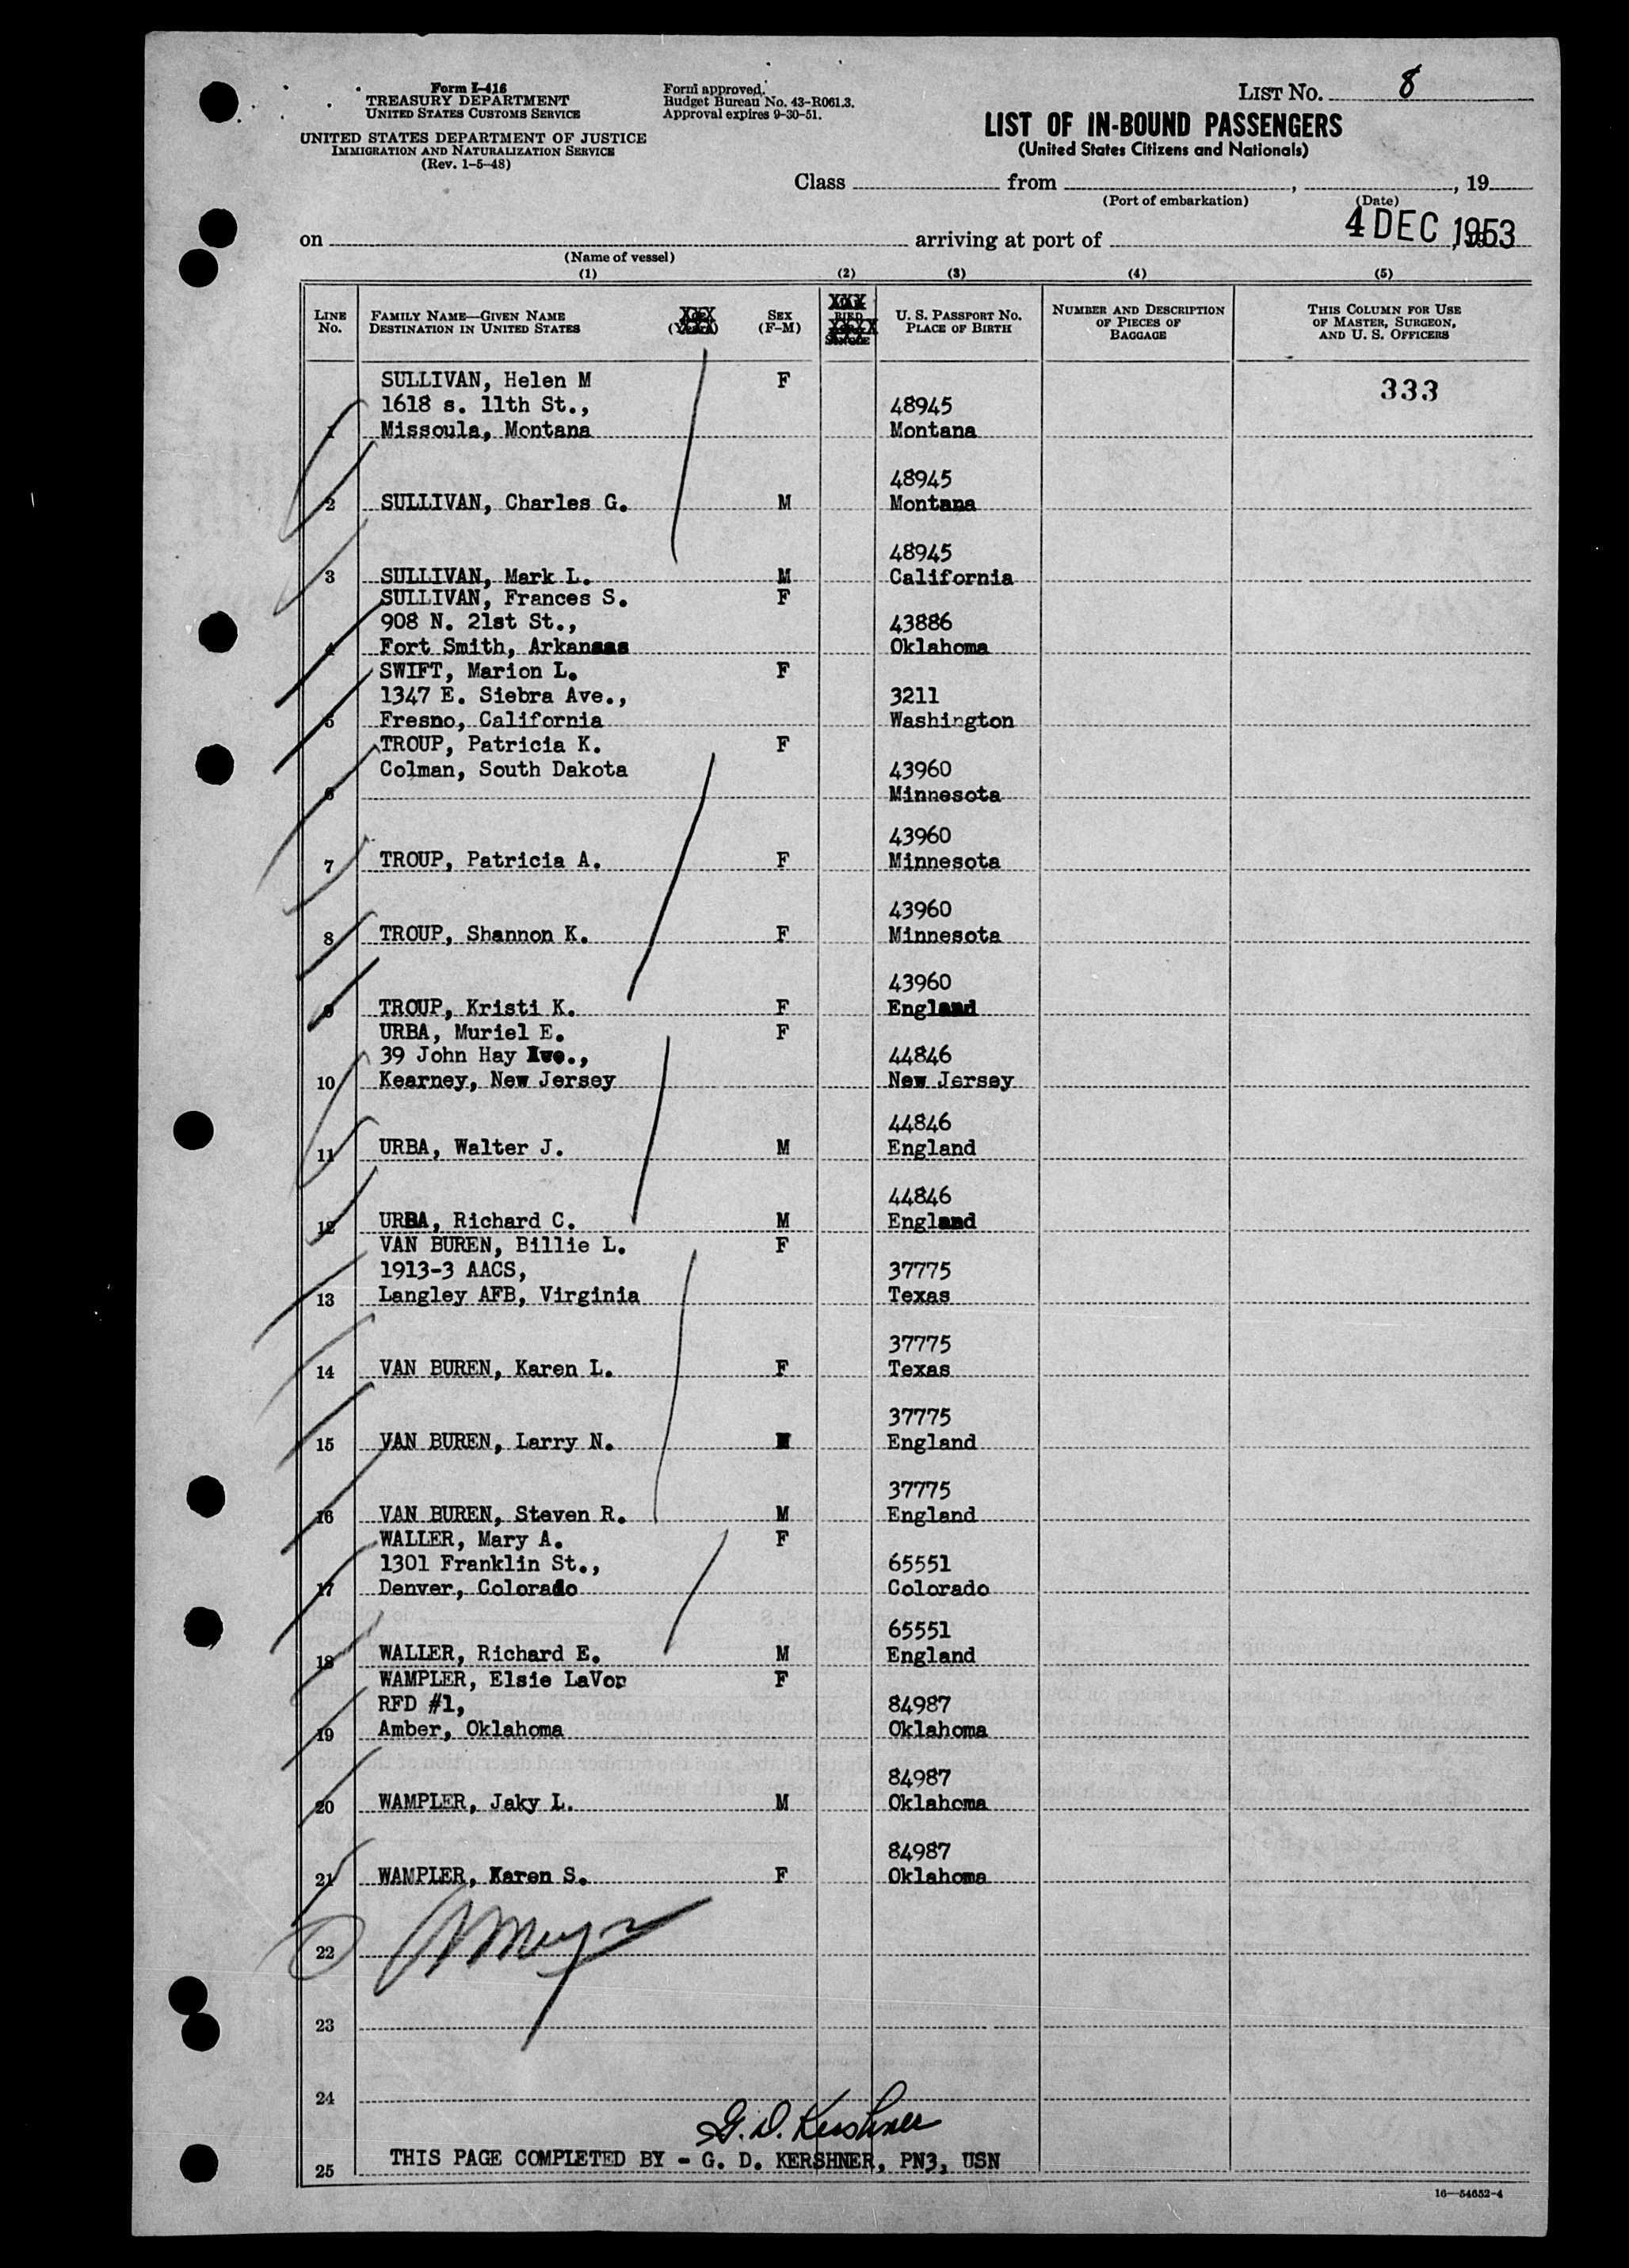 Form I-416
TREASURY DEPARTMENT
UNITED STATES CUSTOMS SERVICE
UNITED STATES DEPARTMENT OF JUSTICE
IMMIGRATION AND NATURALIZATION SERVICE
(Rev. 1-5-48)
Form approved.
Budget Bureau No. 43-R061.3.
Approval expires 9-30-51.
LIST NO. 8
LIST OF IN-BOUND PASSENGERS
(United States Citizens and Nationals)
Class from , , 19
(Port of embarkation) (Date)
4 DEC 1953
on arriving at port of
(Name of vessel)
(1) (2) (3) (4) (5)
LINE NO.
FAMILY NAME—GIVEN NAME
DESTINATION IN UNITED STATES
SEX
(F-M)
U. S. PASSPORT NO.
PLACE OF BIRTH
NUMBER AND DESCRIPTION
OF PIECES OF
BAGGAGE
THIS COLUMN FOR USE
OF MASTER, SURGEON,
AND U. S. OFFICERS
SULLIVAN, Helen M F 333
1618 s. 11th St., 48945
1 Missoula, Montana Montana
48945
2 SULLIVAN, Charles G. M Montana
48945
3 SULLIVAN, Mark L. M California
SULLIVAN, Frances S. F
908 N. 21st St., 43886
4 Fort Smith, Arkansas Oklahoma
SWIFT, Marion L. F
1347 E. Siebra Ave., 3211
5 Fresno, California Washington
TROUP, Patricia K. F
Colman, South Dakota 43960
6 Minnesota
43960
7 TROUP, Patricia A. F Minnesota
43960
8 TROUP, Shannon K. F Minnesota
43960
9 TROUP, Kristi K. F England
URBA, Muriel E. F
39 John Hay Ave., 44846
10 Kearney, New Jersey New Jersey
44846
11 URBA, Walter J. M England
44846
12 URBA, Richard C. M England
VAN BUREN, Billie L. F
1913-3 AACS, 37775
13 Langley AFB, Virginia Texas
37775
14 VAN BUREN, Karen L. F Texas
37775
15 VAN BUREN, Larry N. M England
37775
16 VAN BUREN, Steven R. M England
WALLER, Mary A. F
1301 Franklin St., 65551
17 Denver, Colorado Colorado
65551
18 WALLER, Richard E. M England
WAMPLER, Elsie LaVor F
RFD #1, 84987
19 Amber, Oklahoma Oklahoma
84987
20 WAMPLER, Jaky L. M Oklahoma
84987
21 WAMPLER, Karen S. F Oklahoma
22
23
24
G. D. Kershner
25 THIS PAGE COMPLETED BY - G. D. KERSHNER, PN3, USN
16—54652-4